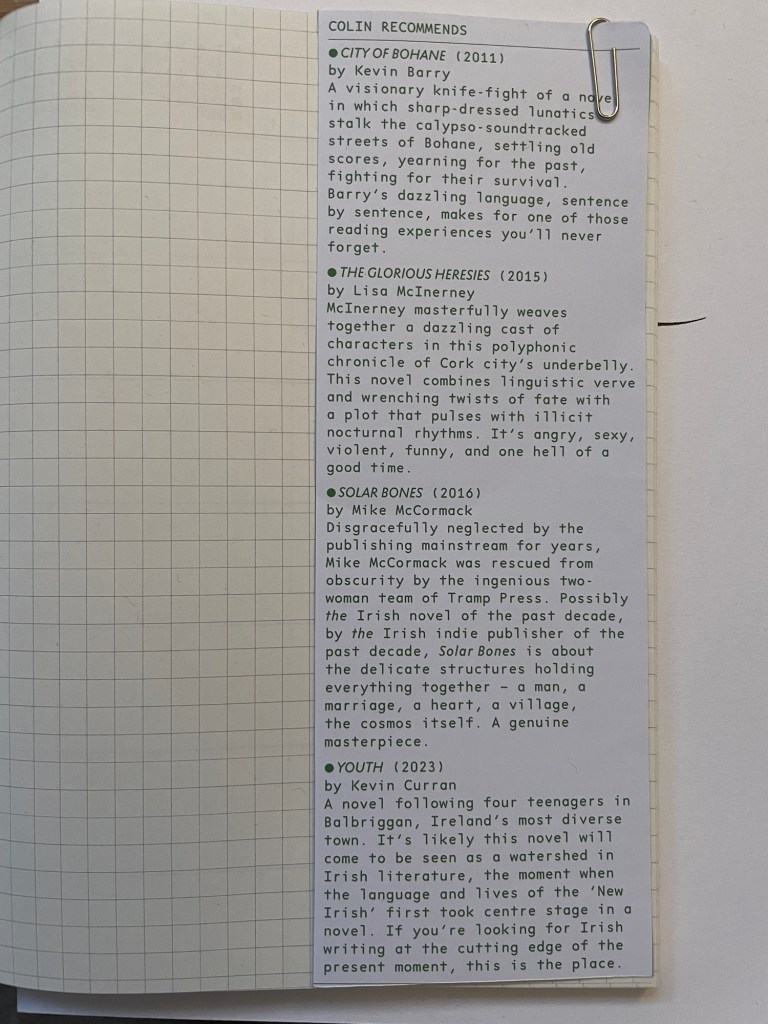 COLIN RECOMMENDS
● CITY OF BOHANE (2011)
by Kevin Barry
A visionary knife-fight of a novel
in which sharp-dressed lunatics
stalk the calypso-soundtracked
streets of Bohane, settling old
scores, yearning for the past,
fighting for their survival.
Barry's dazzling language, sentence
by sentence, makes for one of those
reading experiences you'll never
forget.
● THE GLORIOUS HERESIES (2015)
by Lisa McInerney
McInerney masterfully weaves
together a dazzling cast of
characters in this polyphonic
chronicle of Cork city's underbelly.
This novel combines linguistic verve
and wrenching twists of fate with
a plot that pulses with illicit
nocturnal rhythms. It's angry, sexy,
violent, funny, and one hell of a
good time.
● SOLAR BONES (2016)
by Mike McCormack
Disgracefully neglected by the
publishing mainstream for years,
Mike McCormack was rescued from
obscurity by the ingenious two-
woman team of Tramp Press. Possibly
the Irish novel of the past decade,
by the Irish indie publisher of the
past decade, Solar Bones is about
the delicate structures holding
everything together – a man, a
marriage, a heart, a village,
the cosmos itself. A genuine
masterpiece.
● YOUTH (2023)
by Kevin Curran
A novel following four teenagers in
Balbriggan, Ireland's most diverse
town. It's likely this novel will
come to be seen as a watershed in
Irish literature, the moment when
the language and lives of the ‘New
Irish’ first took centre stage in a
novel. If you're looking for Irish
writing at the cutting edge of the
present moment, this is the place.